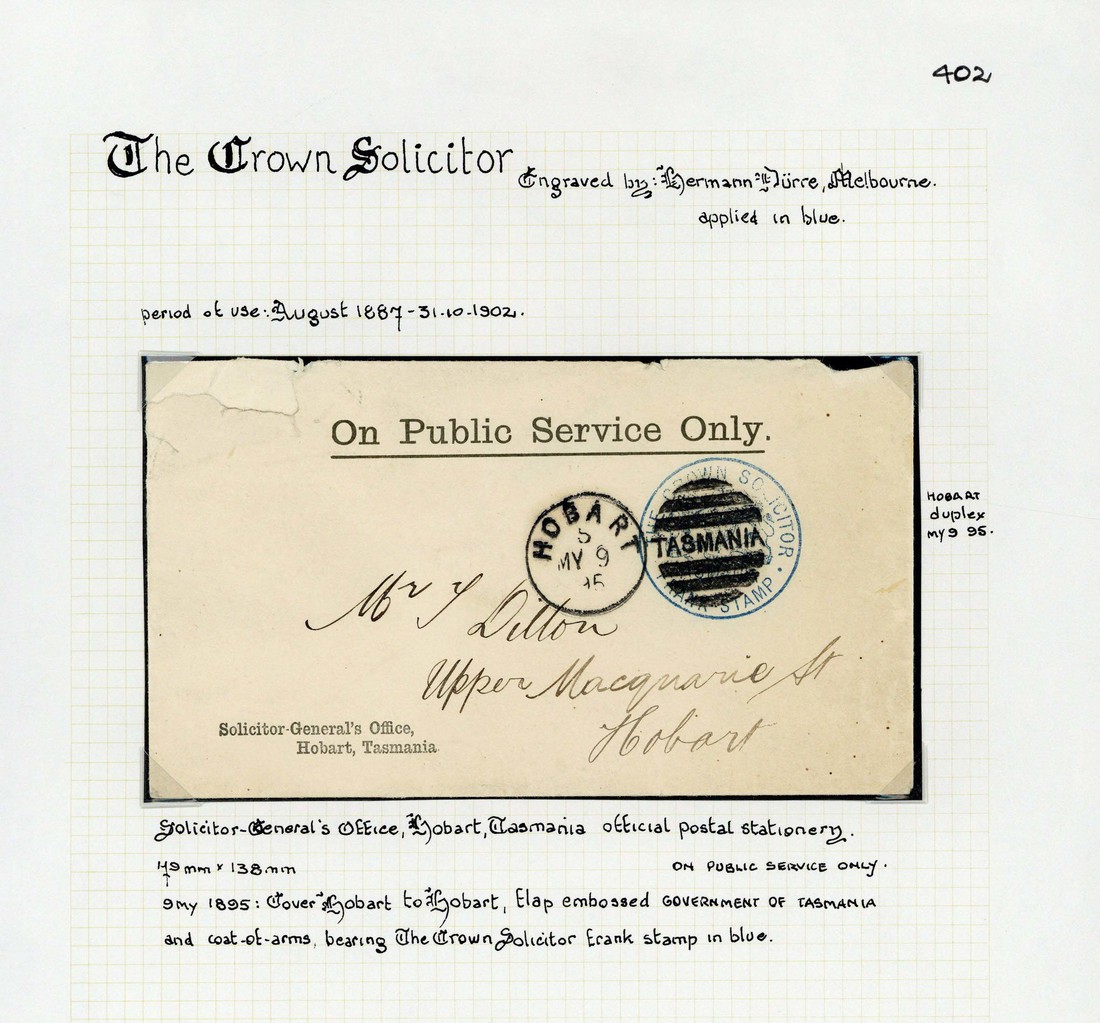 402
The Crown Solicitor
Engraved by: Hermann Dürre, Melbourne.
applied in blue.
period of use: August 1887 - 31.10.1902.
On Public Service Only.
THE CROWN SOLICITOR
FRANK STAMP
TASMANIA
HOBART
5
MY 9
95
HOBART
duplex
MY 9 95.
Mr Dillon
Upper Macquarie St
Hobart
Solicitor-General's Office,
Hobart, Tasmania
Solicitor-General's Office, Hobart, Tasmania official postal stationery.
79mm x 138mm
ON PUBLIC SERVICE ONLY.
9my 1895: Cover Hobart to Hobart, flap embossed GOVERNMENT OF TASMANIA
and coat-of-arms, bearing The Crown Solicitor frank stamp in blue.